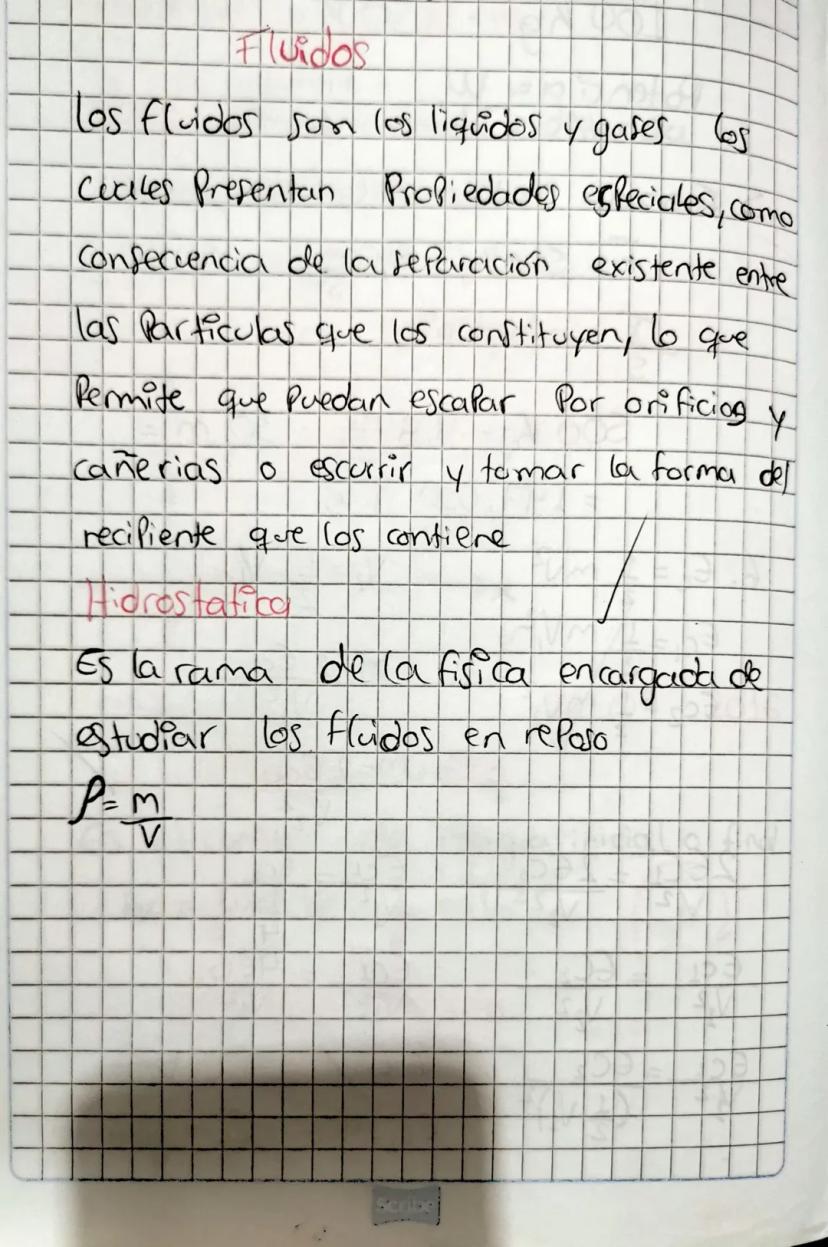 Fluidos
Los fluidos son los liquidos y gases los
cuales Presentan Propiedades especiales, como
consecuencia de la separación existente entre
las Particulas que los constituyen, lo que
Permite que puedan escapar Por orificios y
cañerias o escurrir y tomar la forma del
recipiente que los contiene
Hidrostatica
Es la rama de la fisica encargada de
estudiar los fluidos en reposo
ρ = m
V
Scribe